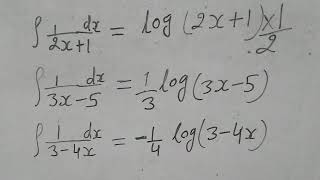 ∫ 1/(2x+1) dx = log(2x+1) × 1/2
∫ 1/(3x-5) dx = 1/3 log(3x-5)
∫ 1/(3-4x) dx = -1/4 log(3-4x)